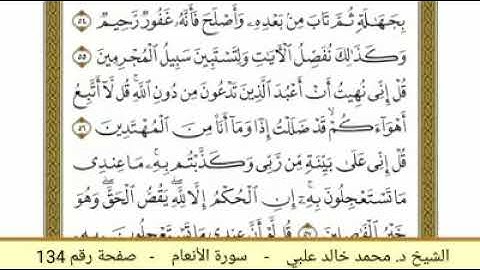 بِجَهَـٰلَةٍ ثُمَّ تَابَ مِنۢ بَعْدِهِۦ وَأَصْلَحَ فَأَنَّهُۥ غَفُورٌ رَّحِيمٌ ٥٤
وَكَذَٰلِكَ نُفَصِّلُ ٱلْـَٔايَـٰتِ وَلِتَسْتَبِينَ سَبِيلُ ٱلْمُجْرِمِينَ ٥٥
قُلْ إِنِّى نُهِيتُ أَنْ أَعْبُدَ ٱلَّذِينَ تَدْعُونَ مِن دُونِ ٱللَّهِ ۚ قُل لَّآ أَتَّبِعُ
أَهْوَآءَكُمْ ۙ قَدْ ضَلَلْتُ إِذًا وَمَآ أَنَا۠ مِنَ ٱلْمُهْتَدِينَ ٥٦
قُلْ إِنِّى عَلَىٰ بَيِّنَةٍ مِّن رَّبِّى وَكَذَّبْتُم بِهِۦ ۚ مَا عِندِى
مَا تَسْتَعْجِلُونَ بِهِۦٓ ۚ إِنِ ٱلْحُكْمُ إِلَّا لِلَّهِ ۖ يَقُصُّ ٱلْحَقَّ ۖ وَهُوَ
خَيْرُ ٱلْفَـٰصِلِينَ قُل لَّوْ أَنَّ عِندِى مَا تَسْتَعْجِلُونَ بِهِۦ
الشيخ د. محمد خالد علبي - سورة الأنعام - صفحة رقم 134